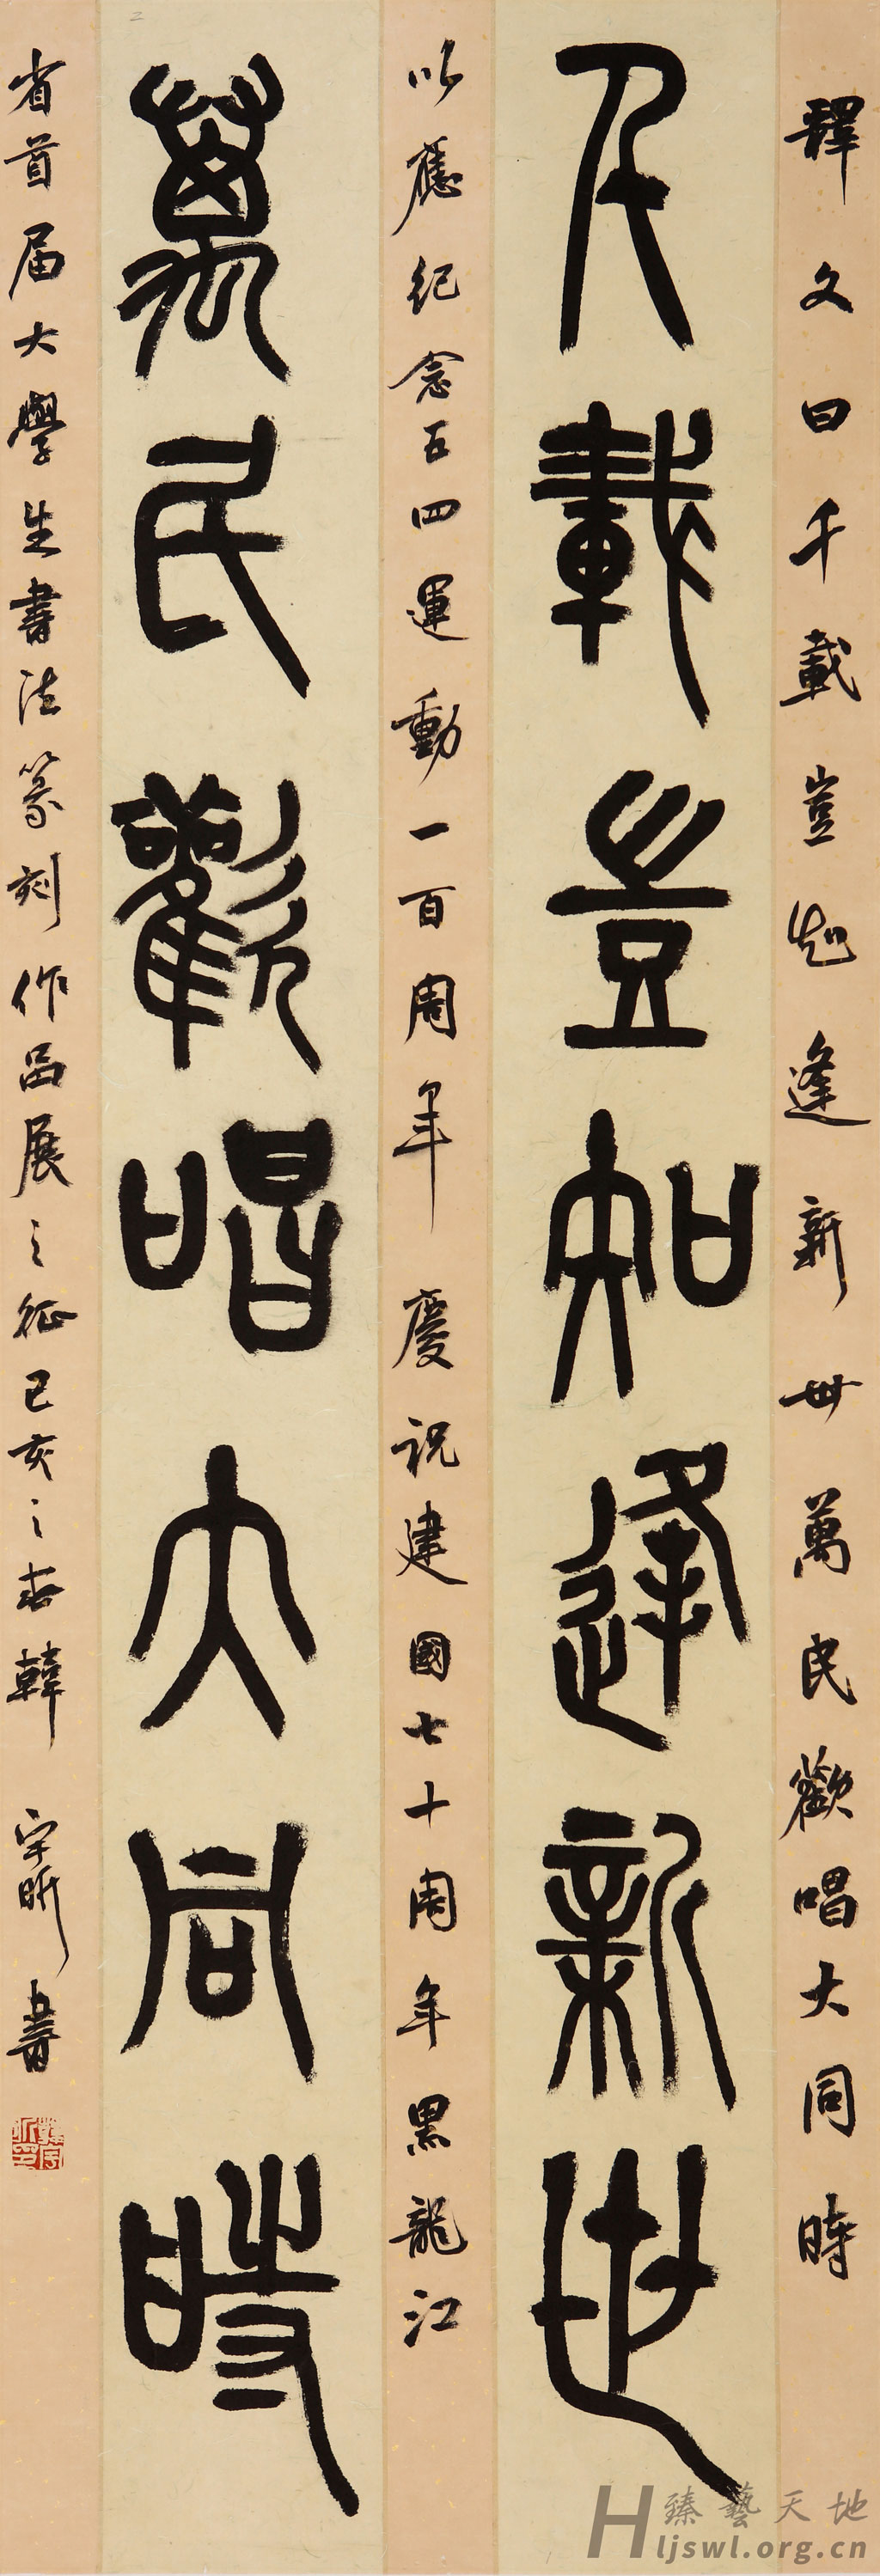 釋文曰千載豈知逢新世萬民歡唱大同時
千載豈知逢新世
以應紀念五四運動一百周年慶祝建國七十周年黑龍江
萬民歡唱大同時
省首屆大學生書法篆刻作品展之征己亥之春韓宇昕書
韓宇昕印
臻藝天地
Hljswl.org.cn